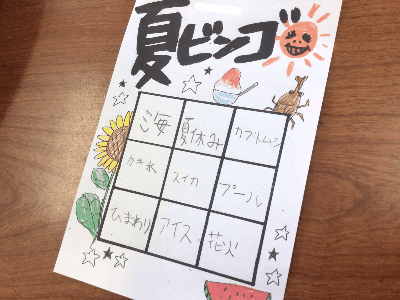 夏ビンゴ
海 夏休み カブトムシ
かき氷 スイカ プール
ひまわり アイス 花火